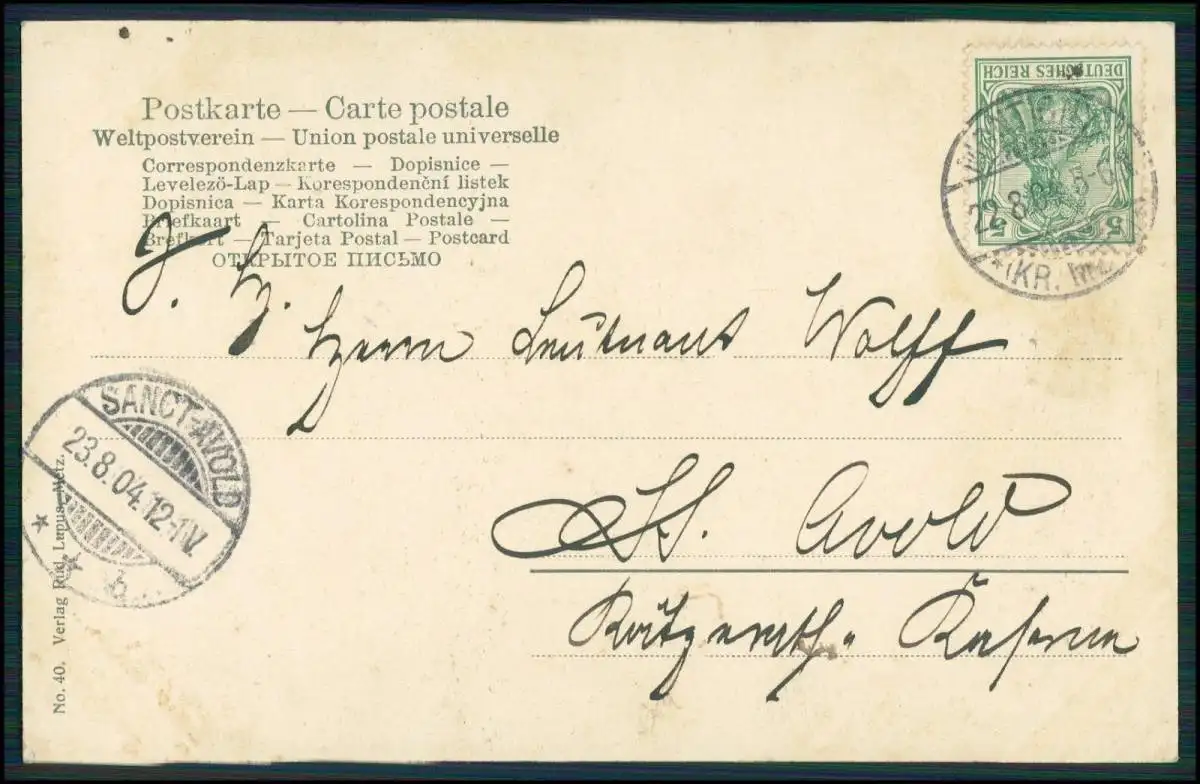 Postkarte — Carte postale
Weltpostverein — Union postale universelle
Correspondenzkarte — Dopisnice —
Levelező-Lap — Korespondenční listek
Dopisnica — Karta Korespondencyjna
Briefkaart — Cartolina Postale —
Brefkort — Tarjeta Postal — Postcard
ОТКРЫТОЕ ПИСЬМО
DEUTSCHES REICH
5 5
22.8.04 5-6
(KR.
Herrn Leutnant Wolff
St. Avold
Kaserne
SANCT-AVOLD
23.8.04.12-1V.
* * b.
No. 40. Verlag Rud. Lupus, Metz.